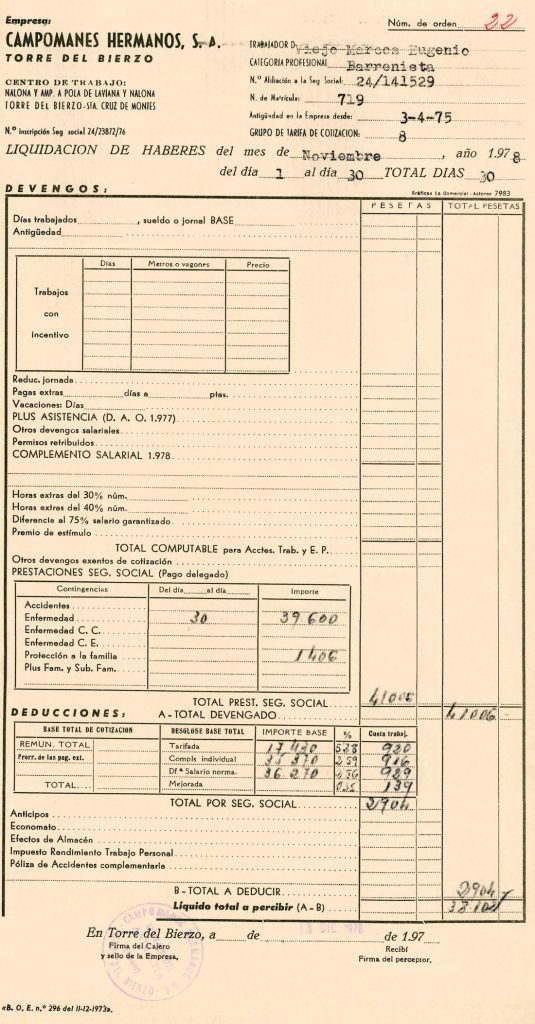 Empresa:
CAMPOMANES HERMANOS, S. A.
TORRE DEL BIERZO
CENTRO DE TRABAJO:
NALONA Y AMP. A POLA DE LAVIANA Y NALONA
TORRE DEL BIERZO-STA. CRUZ DE MONTES
N.º Inscripción Seg social 24/23872/76
Núm. de orden 22
TRABAJADOR D. Viejo Marcos Eugenio
CATEGORIA PROFESIONAL Barrenista
N.º Afiliación a la Seg Social: 24/141529
N. de Matrícula: 719
Antigüedad en la Empresa desde: 3-4-75
GRUPO DE TARIFA DE COTIZACION: 8
LIQUIDACION DE HABERES del mes de Noviembre, año 1978
del día 1 al día 30 TOTAL DIAS 30
Gráficas La Comercial - Astorga 7983
DEVENGOS:
PESETAS TOTAL PESETAS
Días trabajados, sueldo o jornal BASE
Antigüedad
Días Metros o vagones Precio
Trabajos
con
incentivo
Reduc. jornada
Pagas extras días a ptas.
Vacaciones: Días
PLUS ASISTENCIA (D. A. O. 1.977)
Otros devengos salariales
Permisos retribuidos
COMPLEMENTO SALARIAL 1.978
Horas extras del 30% núm.
Horas extras del 40% núm.
Diferencia al 75% salario garantizado
Premio de estímulo
TOTAL COMPUTABLE para Acctes. Trab. y E. P.
Otros devengos exentos de cotización
PRESTACIONES SEG. SOCIAL (Pago delegado)
Contingencias Del día al día Importe
Accidentes
Enfermedad 30 39600
Enfermedad C. C.
Enfermedad C. E.
Protección a la familia 1406
Plus Fam. y Sub. Fam.
TOTAL PREST. SEG. SOCIAL 41006
DEDUCCIONES: A - TOTAL DEVENGADO 41006
BASE TOTAL DE COTIZACION DESGLOSE BASE TOTAL IMPORTE BASE % Cuota trabaj.
REMUN. TOTAL Tarifada 17430 5,28 920
Prorr. de las pag. ext. Compls individual 916
Dfª Salario norma. 36270 929
TOTAL Mejorada 139
TOTAL POR SEG. SOCIAL 2904
Anticipos
Economato
Efectos de Almacén
Impuesto Rendimiento Trabajo Personal
Póliza de Accidentes complementaria
B - TOTAL A DEDUCIR 2904
Líquido total a percibir (A - B) 38102
En Torre del Bierzo, a de de 1.97
DIC. 1978
Firma del Cajero
y sello de la Empresa,
Recibí
Firma del perceptor,
«B. O. E. n.º 296 del 11-12-1973».